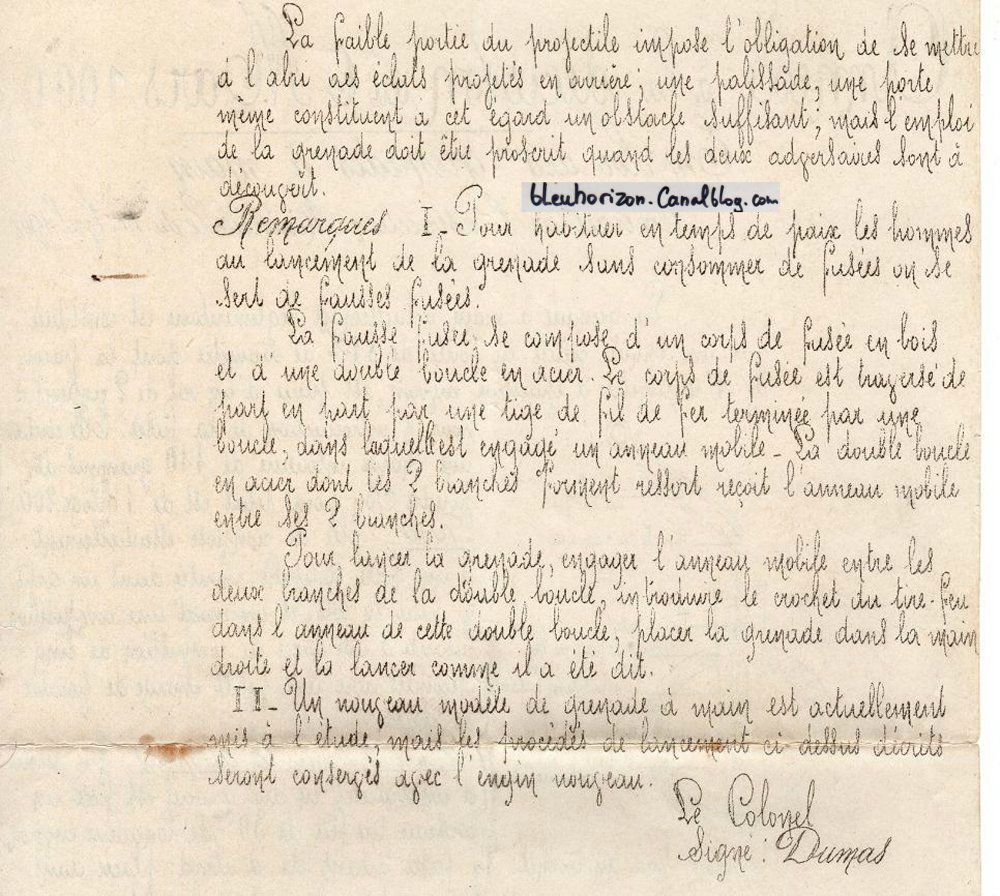 La faible portée du projectile impose l'obligation de se mettre
à l'abri des éclats projetés en arrière; une palissade, une porte
même constituent à cet égard un obstacle suffisant; mais l'emploi
de la grenade doit être proscrit quand les deux adversaires sont à
découvert.
bleuhorizon.Canalblog.com
Remarques I_ Pour habituer en temps de paix les hommes
au lancement de la grenade sans consommer de fusées on se
sert de fausses fusées.
La fausse fusée se compose d'un corps de fusée en bois
et d'une double boucle en acier. Le corps de fusée est traversé de
part en part par une tige de fil de fer terminée par une
boucle, dans laquelle est engagé un anneau mobile _ La double boucle
en acier dont les 2 branches forment ressort reçoit l'anneau mobile
entre ses 2 branches.
Pour lancer la grenade, engager l'anneau mobile entre les
deux branches de la double boucle, introduire le crochet du tire-feu
dans l'anneau de cette double boucle, placer la grenade dans la main
droite et la lancer comme il a été dit.
II_ Un nouveau modèle de grenade à main est actuellement
mis à l'étude, mais les procédés de lancement ci dessus décrits
seront conservés avec l'engin nouveau.
Le Colonel
Signé: Dumas